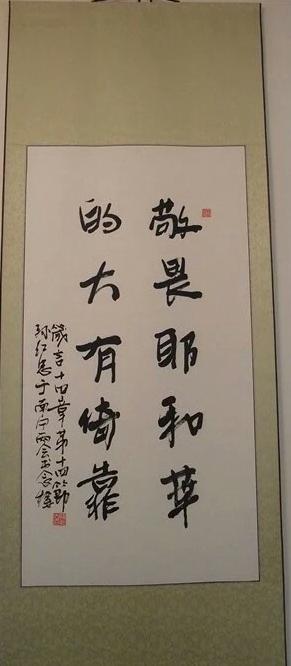 敬畏耶和华
的大有倚靠
箴言十四章第十四節